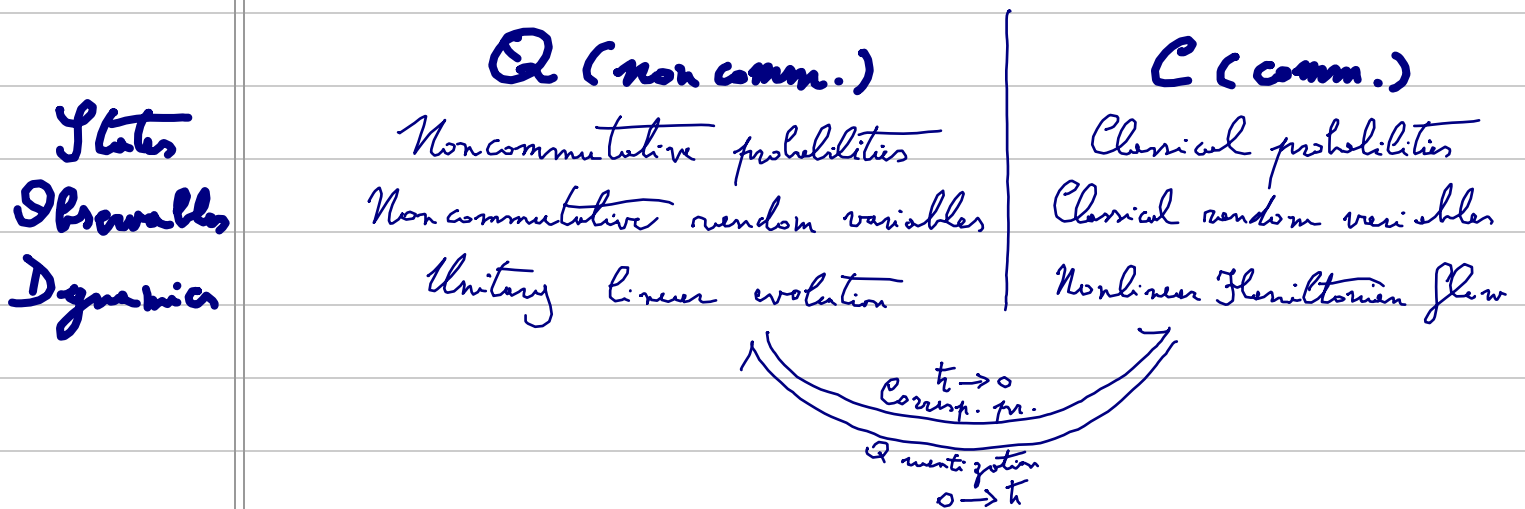 Q (non comm.) C (comm.)
States Noncommutative probabilities Classical probabilities
Observables Noncommutative random variables Classical random variables
Dynamics Unitary linear evolution Nonlinear Hamiltonian flow
ℏ → 0
Corresp. pr.
Quantization
0 → ℏ